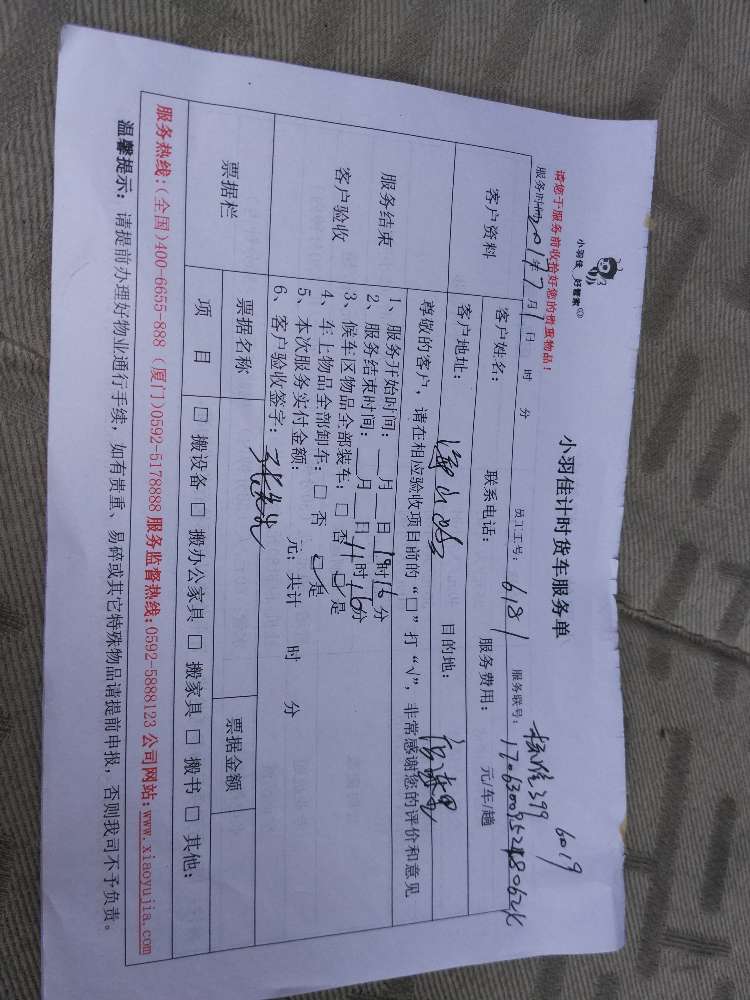 小羽佳 好管家
小羽佳计时货车服务单
请您于服务前收拾好您的贵重物品!
服务时间:2017年7月1日 时 分 员工工号: 6181 服务联号:
6019
客户资料
客户姓名: 联系电话: 服务费用: 元/车/趟
客户地址: 目的地:
服务结束
客户验收
尊敬的客户,请在相应验收项目前的“□”打“√”,非常感谢您的评价和意见
1、服务开始时间: 月 日 时16分
2、服务结束时间: 月 日11时16分
3、候车区物品全部装车:□ 否 ☑ 是
4、车上物品全部卸车:□ 否 ☑ 是
5、本次服务实付金额: 元;共计 时 分
6、客户验收签字:
票据栏
票据名称 票据金额
项 目 □ 搬设备 □ 搬办公家具 □ 搬家具 □ 搬书 □ 其他:
服务热线:(全国)400-6655-888(厦门)0592-5178888 服务监督热线:0592-5888123 公司网站:www.xiaoyujia.com
温馨提示:请提前办理好物业通行手续,如有贵重、易碎或其它特殊物品请提前申报,否则我司不予负责。